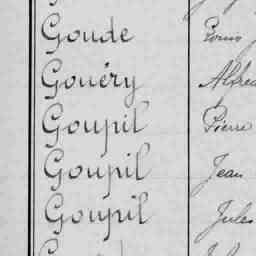 Goude Louis
Gouéry Alfred
Goupil Pierre
Goupil Jean
Goupil Jules